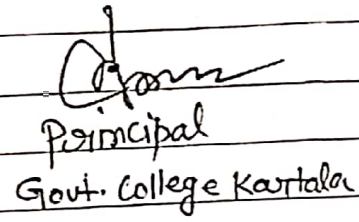 Principal
Govt. College Kartala